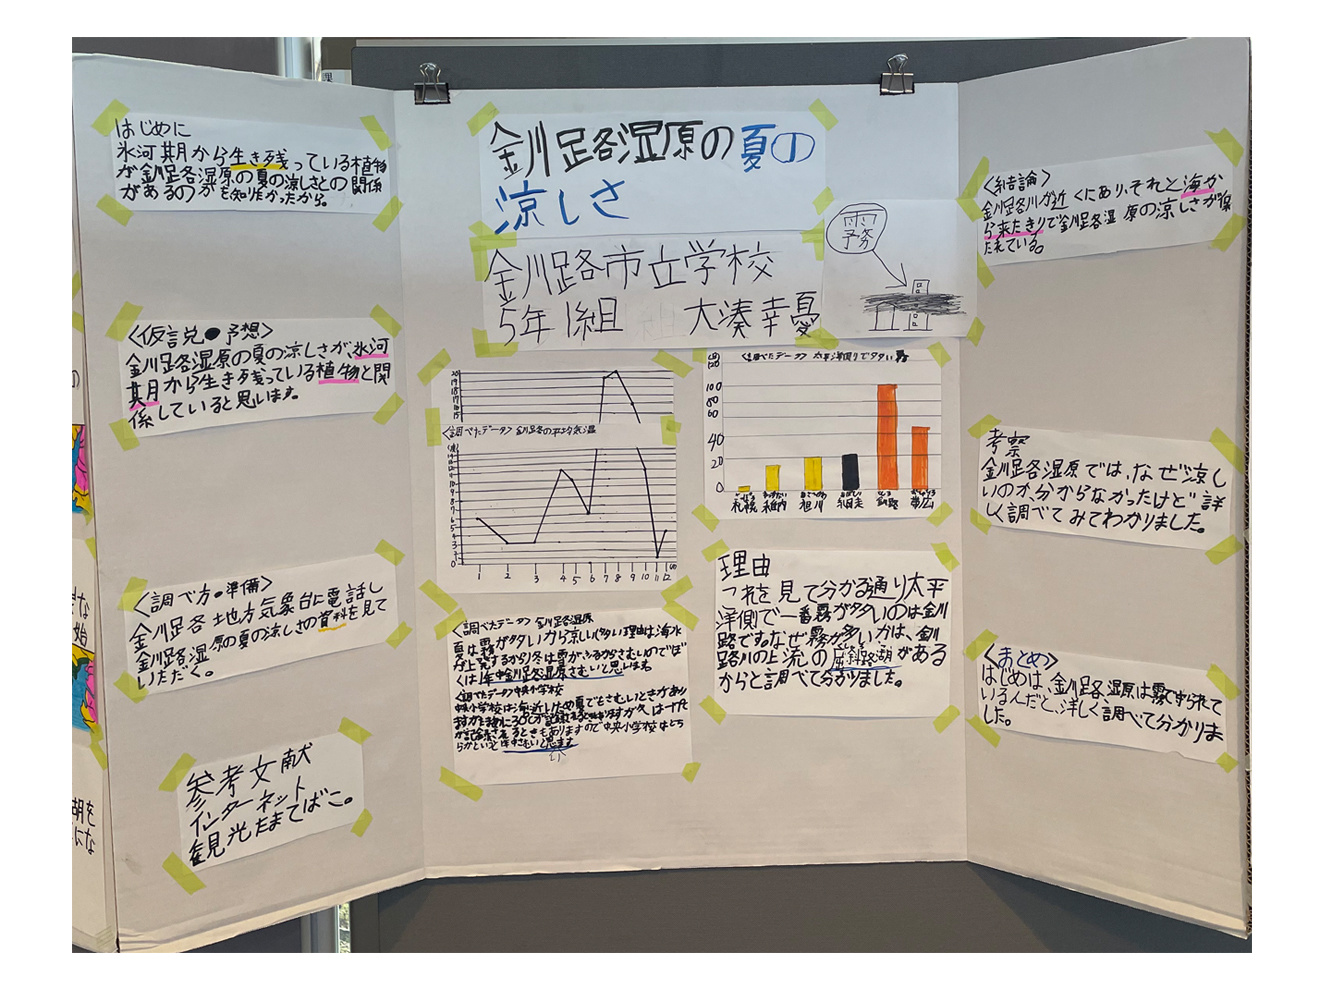 はじめに
氷河期から生き残っている植物
が釧路湿原の夏の涼しさとの関係
があるのかを知りたかったから。
〈仮説・予想〉
釧路湿原の夏の涼しさが、氷河
期から生き残っている植物と関
係していると思います。
〈調べ方・準備〉
釧路地方気象台に電話し
釧路湿原の夏の涼しさの資料を見て
いただく。
参考文献
インターネット
観光たまてばこ。
釧路湿原の夏の
涼しさ
釧路市立学校
5年1組 大湊幸憂
霧
20
19
18
17
16
15
〈調べたデータ〉釧路の平均気温
1 2 3 4 5 6 7 8 9 10 11 12
〈調べたデータ〉太平洋側りで多い
120
100
80
60
40
20
0
札幌 稚内 旭川 網走 釧路 帯広
〈調べたデータ〉釧路湿原
夏は霧が多いから涼しい(多い理由は海水
が上発するから)冬は雪がふるからさむいのでぼ
くは1年中釧路湿原さむいと思います。
〈調べたデータ〉中央小学校
中央小学校は海に近いため夏でもさむいときがあり
ますが
ちらかというと年中さむいと思います
理由
これを見て分かる通り太平
洋側で一番霧が多いのは釧
路です。なぜ霧が多いかは、釧
路川の上流の屈斜路湖がある
からと調べて分かりました。
〈結論〉
釧路川が近くにあり、それと海か
ら来たきりで釧路湿原の涼しさが保
たれている。
考察
釧路湿原では、なぜ涼し
いのか、分からなかったけど詳
しく調べてみてわかりました。
〈まとめ〉
はじめは、釧路湿原は霧で守られて
いるんだと、詳しく調べて分かりま
した。